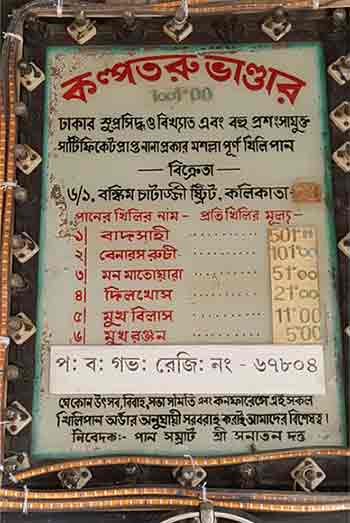 কল্পতরু ভাণ্ডার
1001'00
ঢাকার সুপ্রসিদ্ধ ও বিখ্যাত এবং বহু প্রশংসাযুক্ত
সার্টিফিকেট প্রাপ্ত নানাপ্রকার মশল্লা পূর্ণ খিলি পান
— বিক্রেতা —
৬/১, বঙ্কিম চাটার্জ্জী স্ট্রিট, কলিকাতা
পানের খিলির নাম - প্রতি খিলির মূল্য
১ বাদসাহী 501'00
২ বেনারস রুচী 101'00
৩ মন মাতোয়ারা 51'00
৪ দিলখোস 21'00
৫ মুখ বিলাস 11'00
৬ মুখ রঞ্জন 5'00
প: ব: গভ: রেজি: নং - ৬৭৮০৪
যে কোন উৎসব, বিবাহ, সভা সমিতি এবং কনফারেন্সে এই সকল
খিলিপান অর্ডার অনুযায়ী সরবরাহ করাই আমাদের বিশেষত্ব।
নিবেদক:- পান সম্রাট শ্রী সনাতন দত্ত